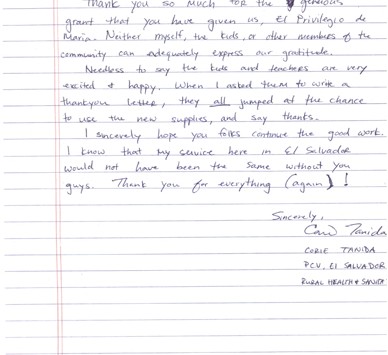 Thank you so much for the generous
grant that you have given us, El Privilegio de
Maria. Neither myself, the kids, or other members of the
community can adequately express our gratitude.
Needless to say the kids and teachers are very
excited & happy. When I asked them to write a
thankyou letter, they all jumped at the chance
to use the new supplies, and say thanks.
I sincerely hope you folks continue the good work.
I know that my service here in El Salvador
would not have been the same without you
guys. Thank you for everything (again)!
Sincerely,
Tanida
CORIE TANIDA
PCV, El SALVADOR
RURAL HEALTH &